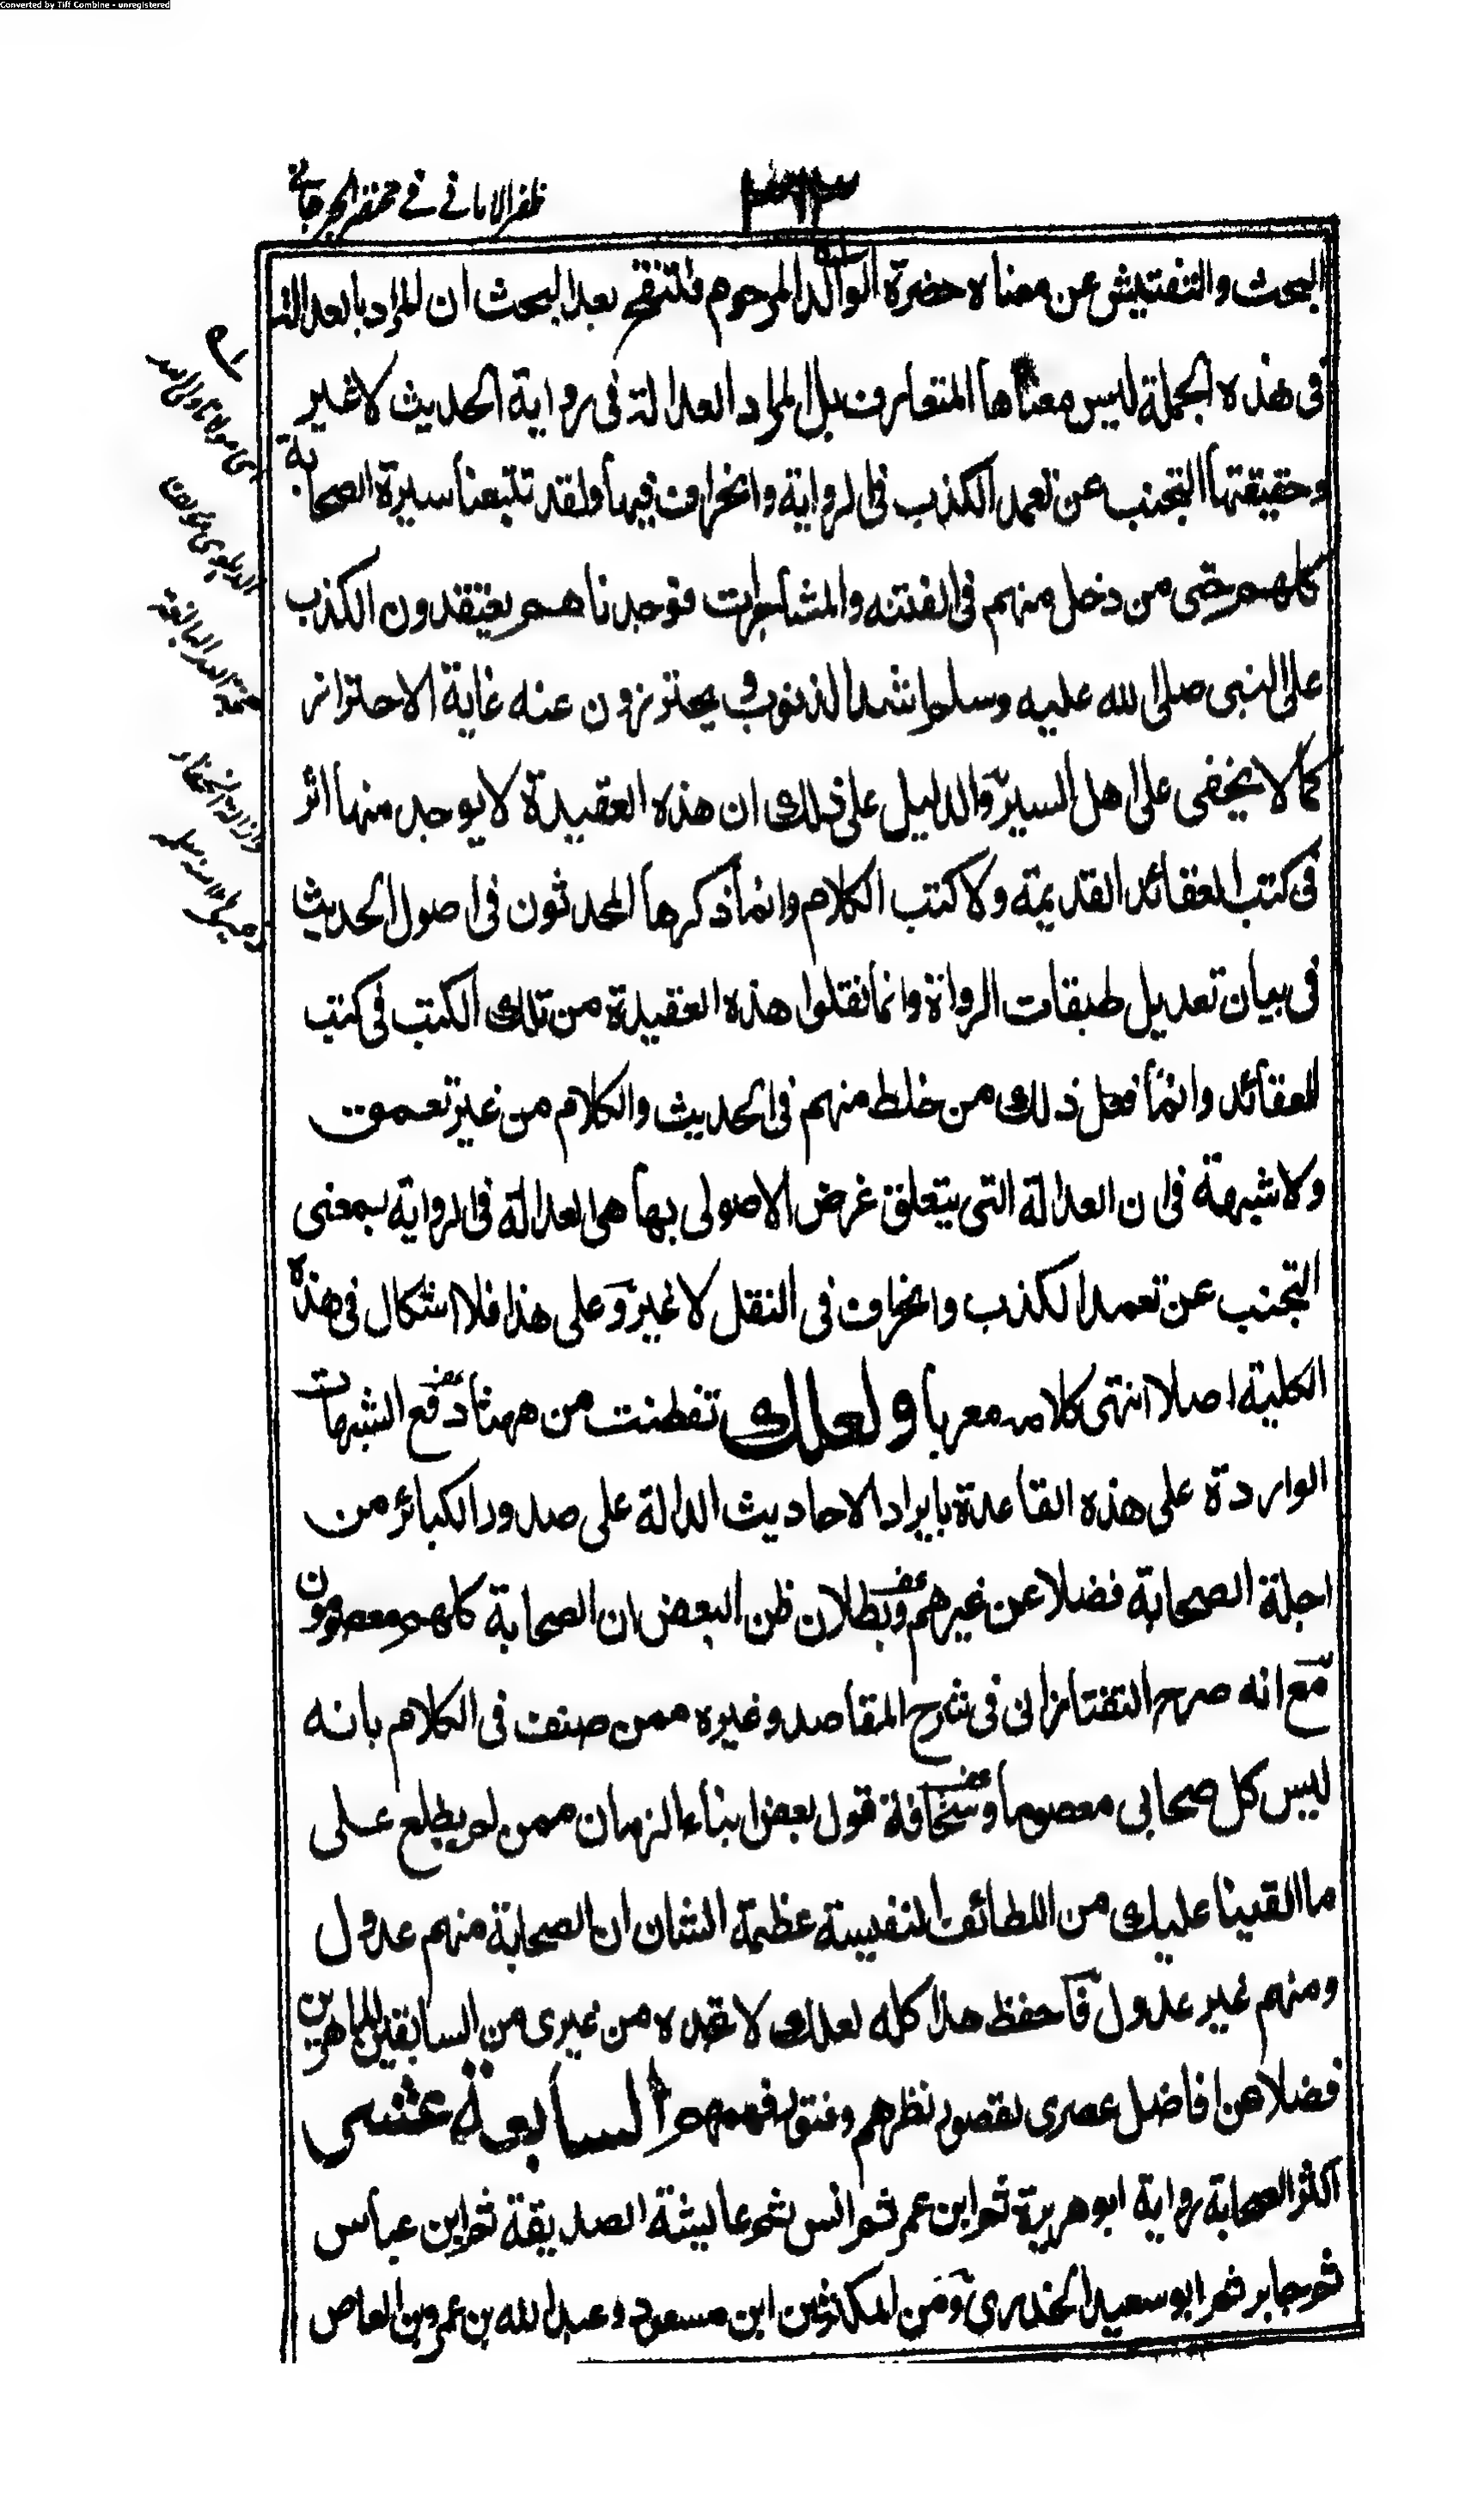 Converted by Tiff Combine - unregistered
ظفر الامانى فى مختصر الجرجانى
البحث والتفتيش عن معناه حضرة الوالد المرحوم فلتنقح بعد البحث ان المراد بالعدالة
فى هذه الجملة ليس معناها المتعارف بل المراد العدالة فى رواية الحديث لا غير
وحقيقتها التجنب عن تعمد الكذب فى الرواية وانحراف فيها ولقد تتبعنا سيرة الصحابة
كلهم حتى من دخل منهم فى الفتنه والمشاجرات فوجدناهم يعتقدون الكذب
على النبى صلى الله عليه وسلم اشد الذنوب ويحترزون عنه غاية الاحتراز
كما لا يخفى على اهل السير والدليل على ذلك ان هذه العقيدة لا يوجد منها اثر
فى كتب العقائد القديمة ولا كتب الكلام وانما ذكرها المحدثون فى اصول الحديث
فى بيان تعديل طبقات الرواة وانما نقلوا هذه العقيدة من تلك الكتب فى كتب
العقائد وانما فعل ذلك من خلط منهم فى الحديث والكلام من غير تعمق
ولا شبهة فى ان العدالة التى يتعلق غرض الاصولى بها هى العدالة فى الرواية بمعنى
التجنب عن تعمد الكذب وانحراف فى النقل لا غير وعلى هذا فلا اشكال فى هذه
الكلية اصلا انتهى كلامه معربا ولعلك تفطنت من ههنا دفع الشبهات
الواردة على هذه القاعدة بايراد الاحاديث الدالة على صدور الكبائر من
اجلة الصحابة فضلا عن غيرهم وبطلان ظن البعض ان الصحابة كلهم معصومون
مع انه صرح التفتازانى فى شرح المقاصد وغيره ممن صنف فى الكلام بانه
ليس كل صحابى معصوما وسخافة قول بعض ابناء الزمان ممن لم يطلع على
ما القينا عليك من اللطائف النفيسة عظيمة الشان ان الصحابة منهم عدول
ومنهم غير عدول فاحفظ هذا كله لعلك لا تجده من غيرى من السابقين الماهرين
فضلا عن افاضل عصرى لقصور نظرهم وفتق فهمهم السابعة عشى
اكثر الصحابة رواية ابو هريرة ثم ابن عمر ثم انس ثم عايشة الصديقة ثم ابن عباس
ثم جابر ثم ابو سعيد الخدرى ومن المكثرين ابن مسعود وعبد الله بن عمرو بن العاص